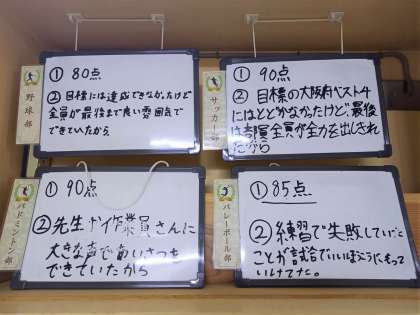 野球部
① 80点
② 目標には達成できなかったけど
全員が最後まで良い雰囲気で
できていたから
サッカー部
① 90点
② 目標の大阪府ベスト4
にはとどかなかったけど、最後
は部員全員が全力を出しきれ
たから
バドミントン部
① 90点
② 先生や作業員さんに
大きな声であいさつも
できていたから
バレーボール部
① 85点
② 練習で失敗していた
ことが試合で